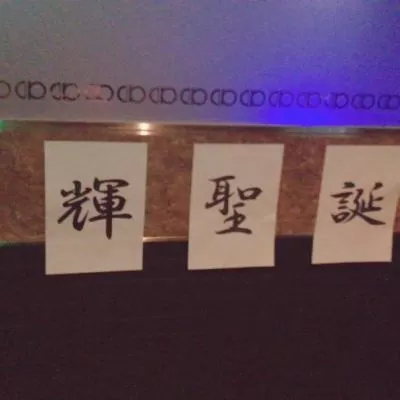 輝聖誕